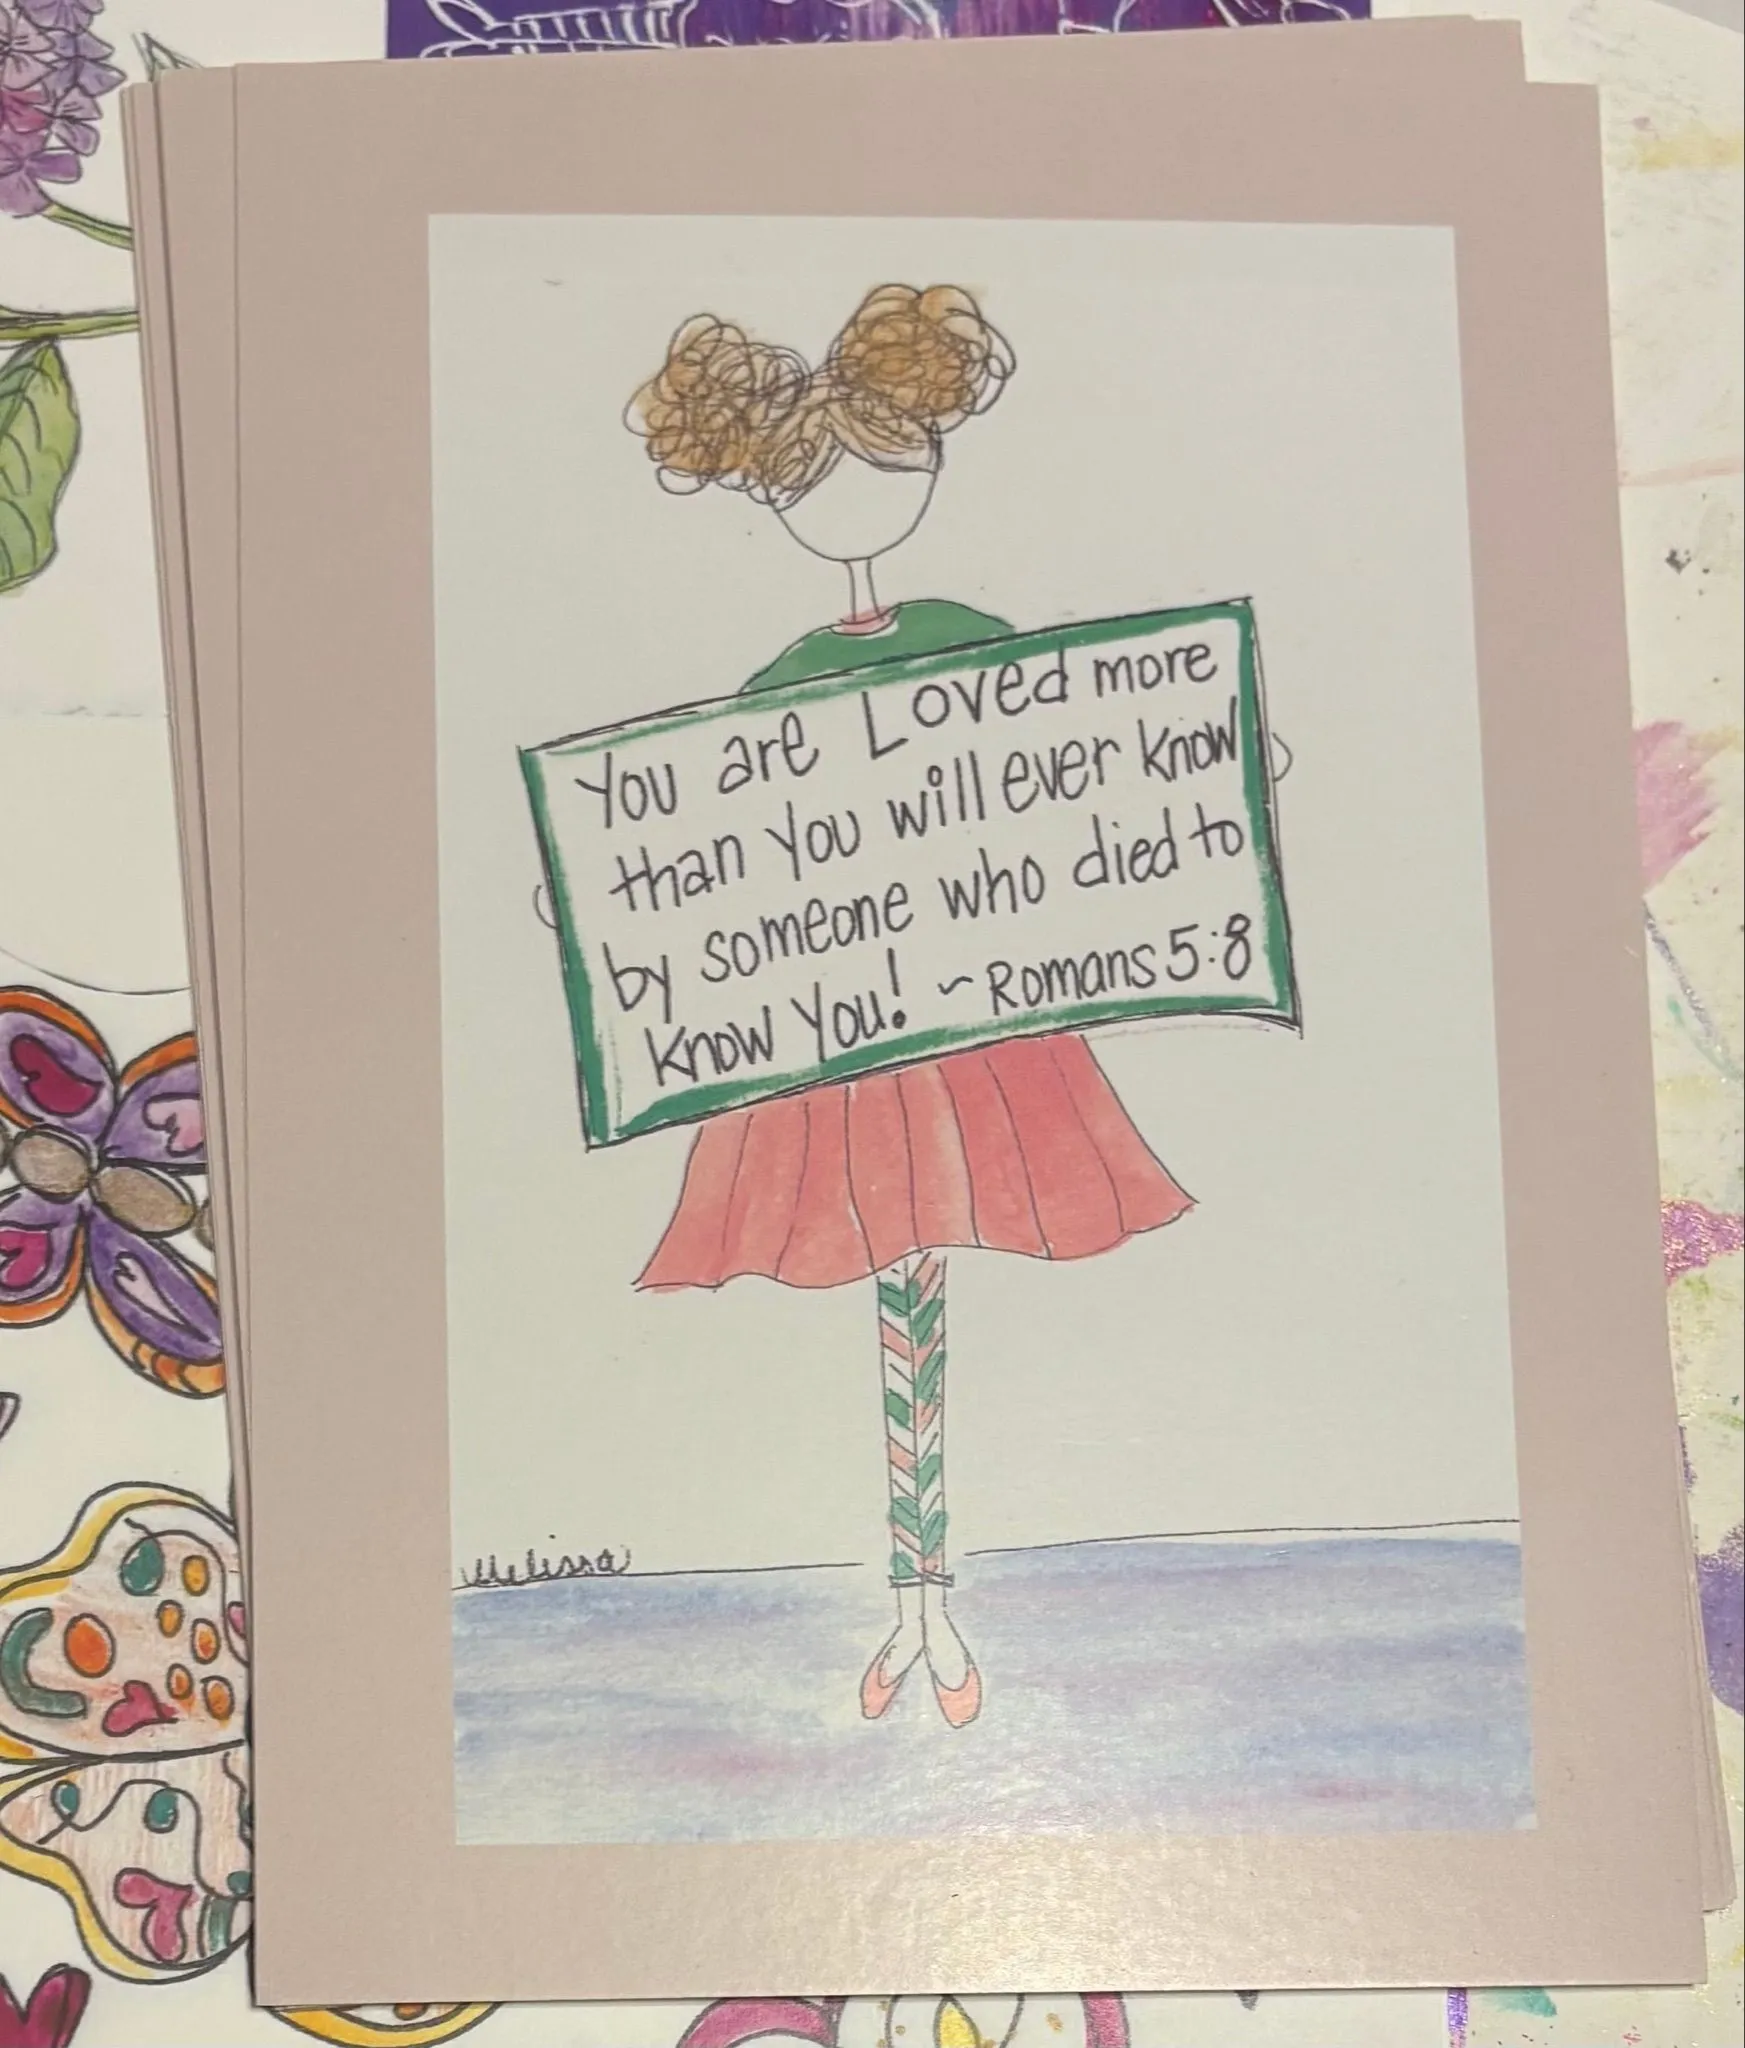 You are Loved more
than you will ever know
by someone who died to
know you! ~ Romans 5:8
Melissa